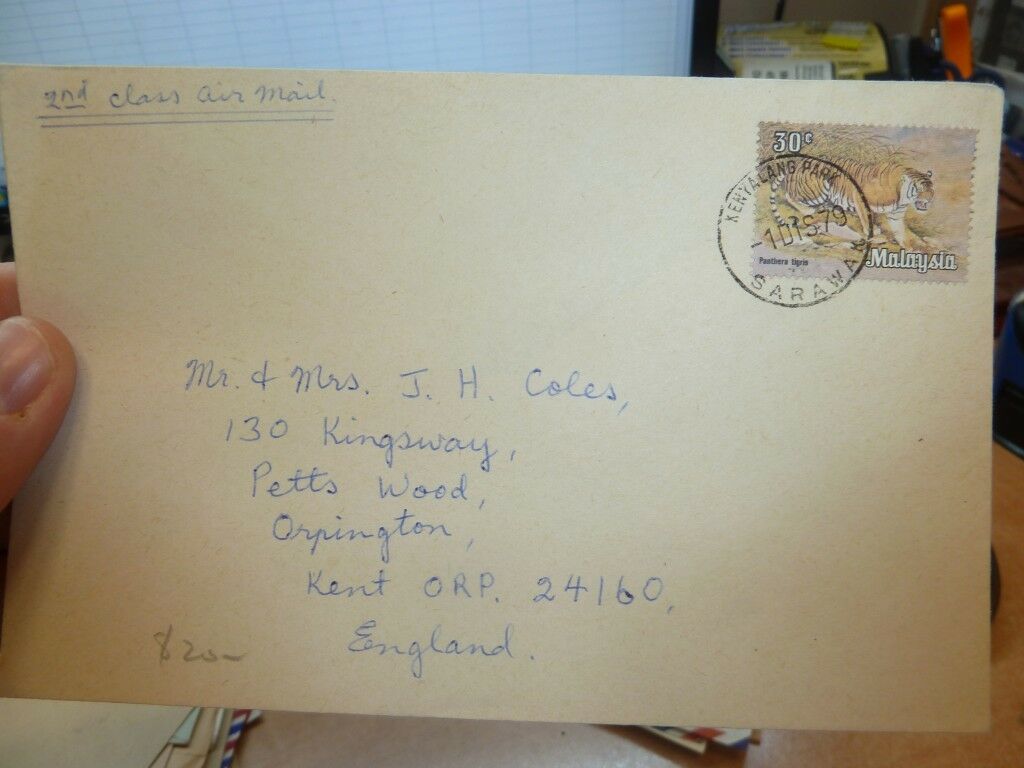 2nd class air mail.
30c
KENYALANG PARK
-1DIS79
SARAWAK
Panthera tigris
Malaysia
Mr. & Mrs. J. H. Coles,
130 Kingsway,
Petts Wood,
Orpington,
Kent ORP. 24160,
England.
$20-